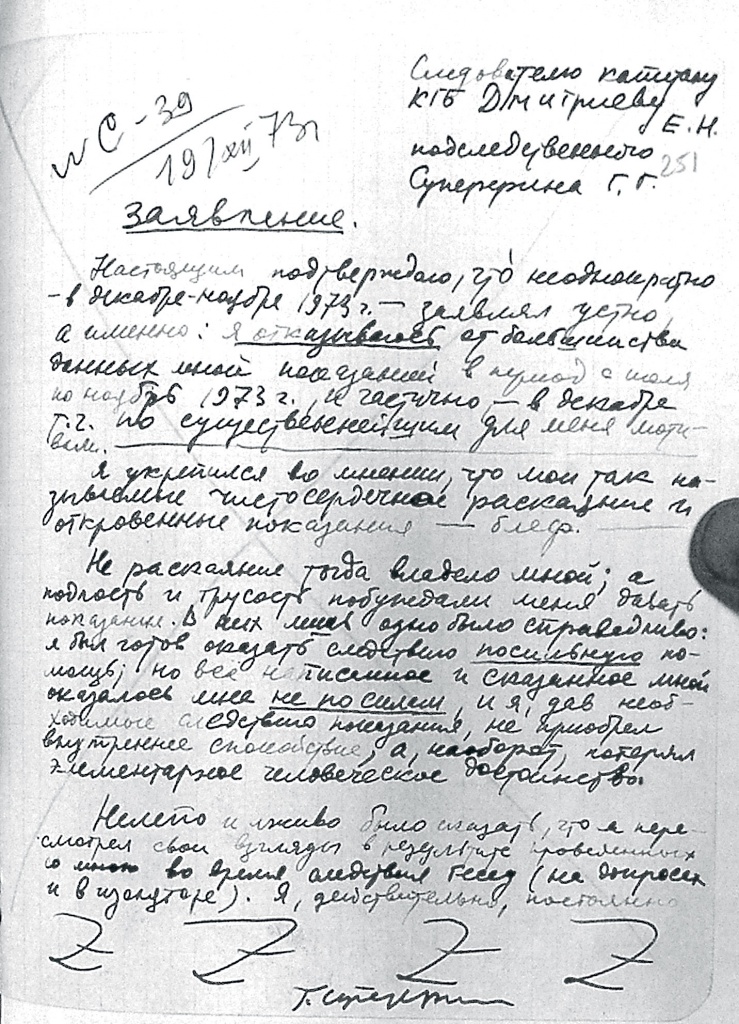 Следователю капитану
КГБ Дмитриеву
Е.Н.
подследственного
251
Суперфина Г.Г.
С-39
19/XII 73г
Заявление.
Настоящим подтверждаю, что неоднократно
– в декабре-ноябре 1973 г. – заявлял устно,
а именно: я отказываюсь от большинства
данных мной показаний в период с июля
по ноябрь 1973 г. и частично – в декабре
т.г. по существеннейшим для меня моти-
вам.
Я укрепился во мнении, что мои так на-
зываемые чистосердечное раскаяние и
откровенные показания — блеф.
Не раскаяние тогда владело мной; а
подлость и трусость побуждали меня давать
показания. В них лишь одно было справедливо:
я был готов оказать следствию посильную по-
мощь; но всё написанное и сказанное мной
оказалось мне не по силам, и я, дав необ-
ходимые следствию показания, не приобрел
внутреннее спокойствие, а, наоборот, потерял
элементарное человеческое достоинство.
Нелепо и лживо было сказать, что я пере-
смотрел свои взгляды в результате проведенных
со мною во время следствия бесед (на допросах
и в изоляторе). Я, действительно, постоянно
Z Z Z Z
Г. Суперфин